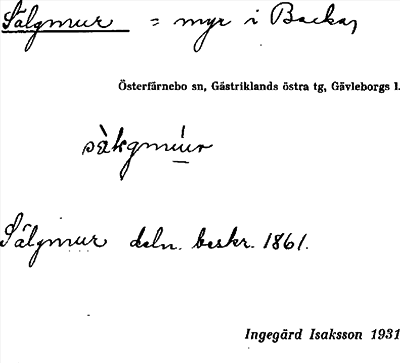 Sälgmur = myr i Backa,
Österfärnebo sn, Gästriklands östra tg, Gävleborgs l.
sàkgmúr
Sälgmur deln. beskr. 1861.
Ingegärd Isaksson 1931